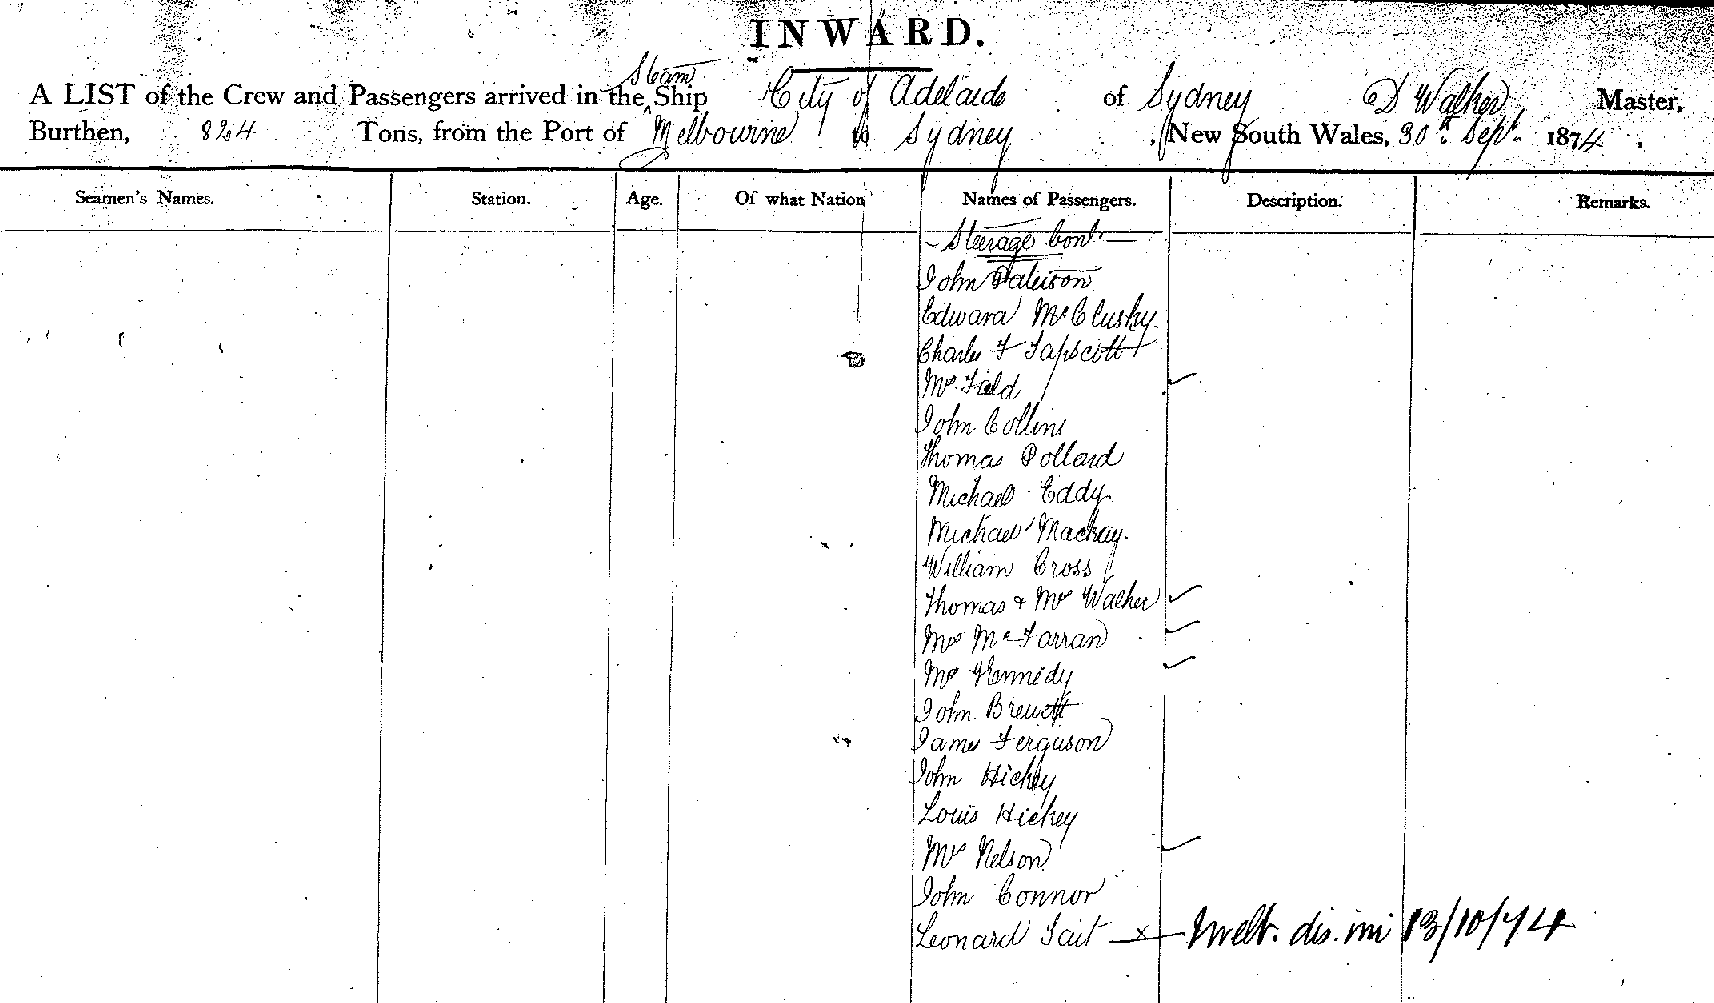 INWARD.
A LIST of the Crew and Passengers arrived in the Steam Ship City of Adelaide of Sydney D Walker Master,
Burthen, 824 Tons, from the Port of Melbourne to Sydney New South Wales, 30th Sept. 1874.
Seamen's Names. Station. Age. Of what Nation Names of Passengers. Description. Remarks.
Steerage Cont.
John Paterson
Edward McClusky
Charles F Tapscott
Mrs Field
John Collins
Thomas Pollard
Michael Eddy
Michael Mackay.
William Cross
Thomas & Mrs Walker
Mrs McFarran
Mrs Kennedy
John Brewett
James Ferguson
John Hickey
Louis Hickey
Mrs Nelson
John Connor
Leonard Tait x Melb. dis. 13/10/74